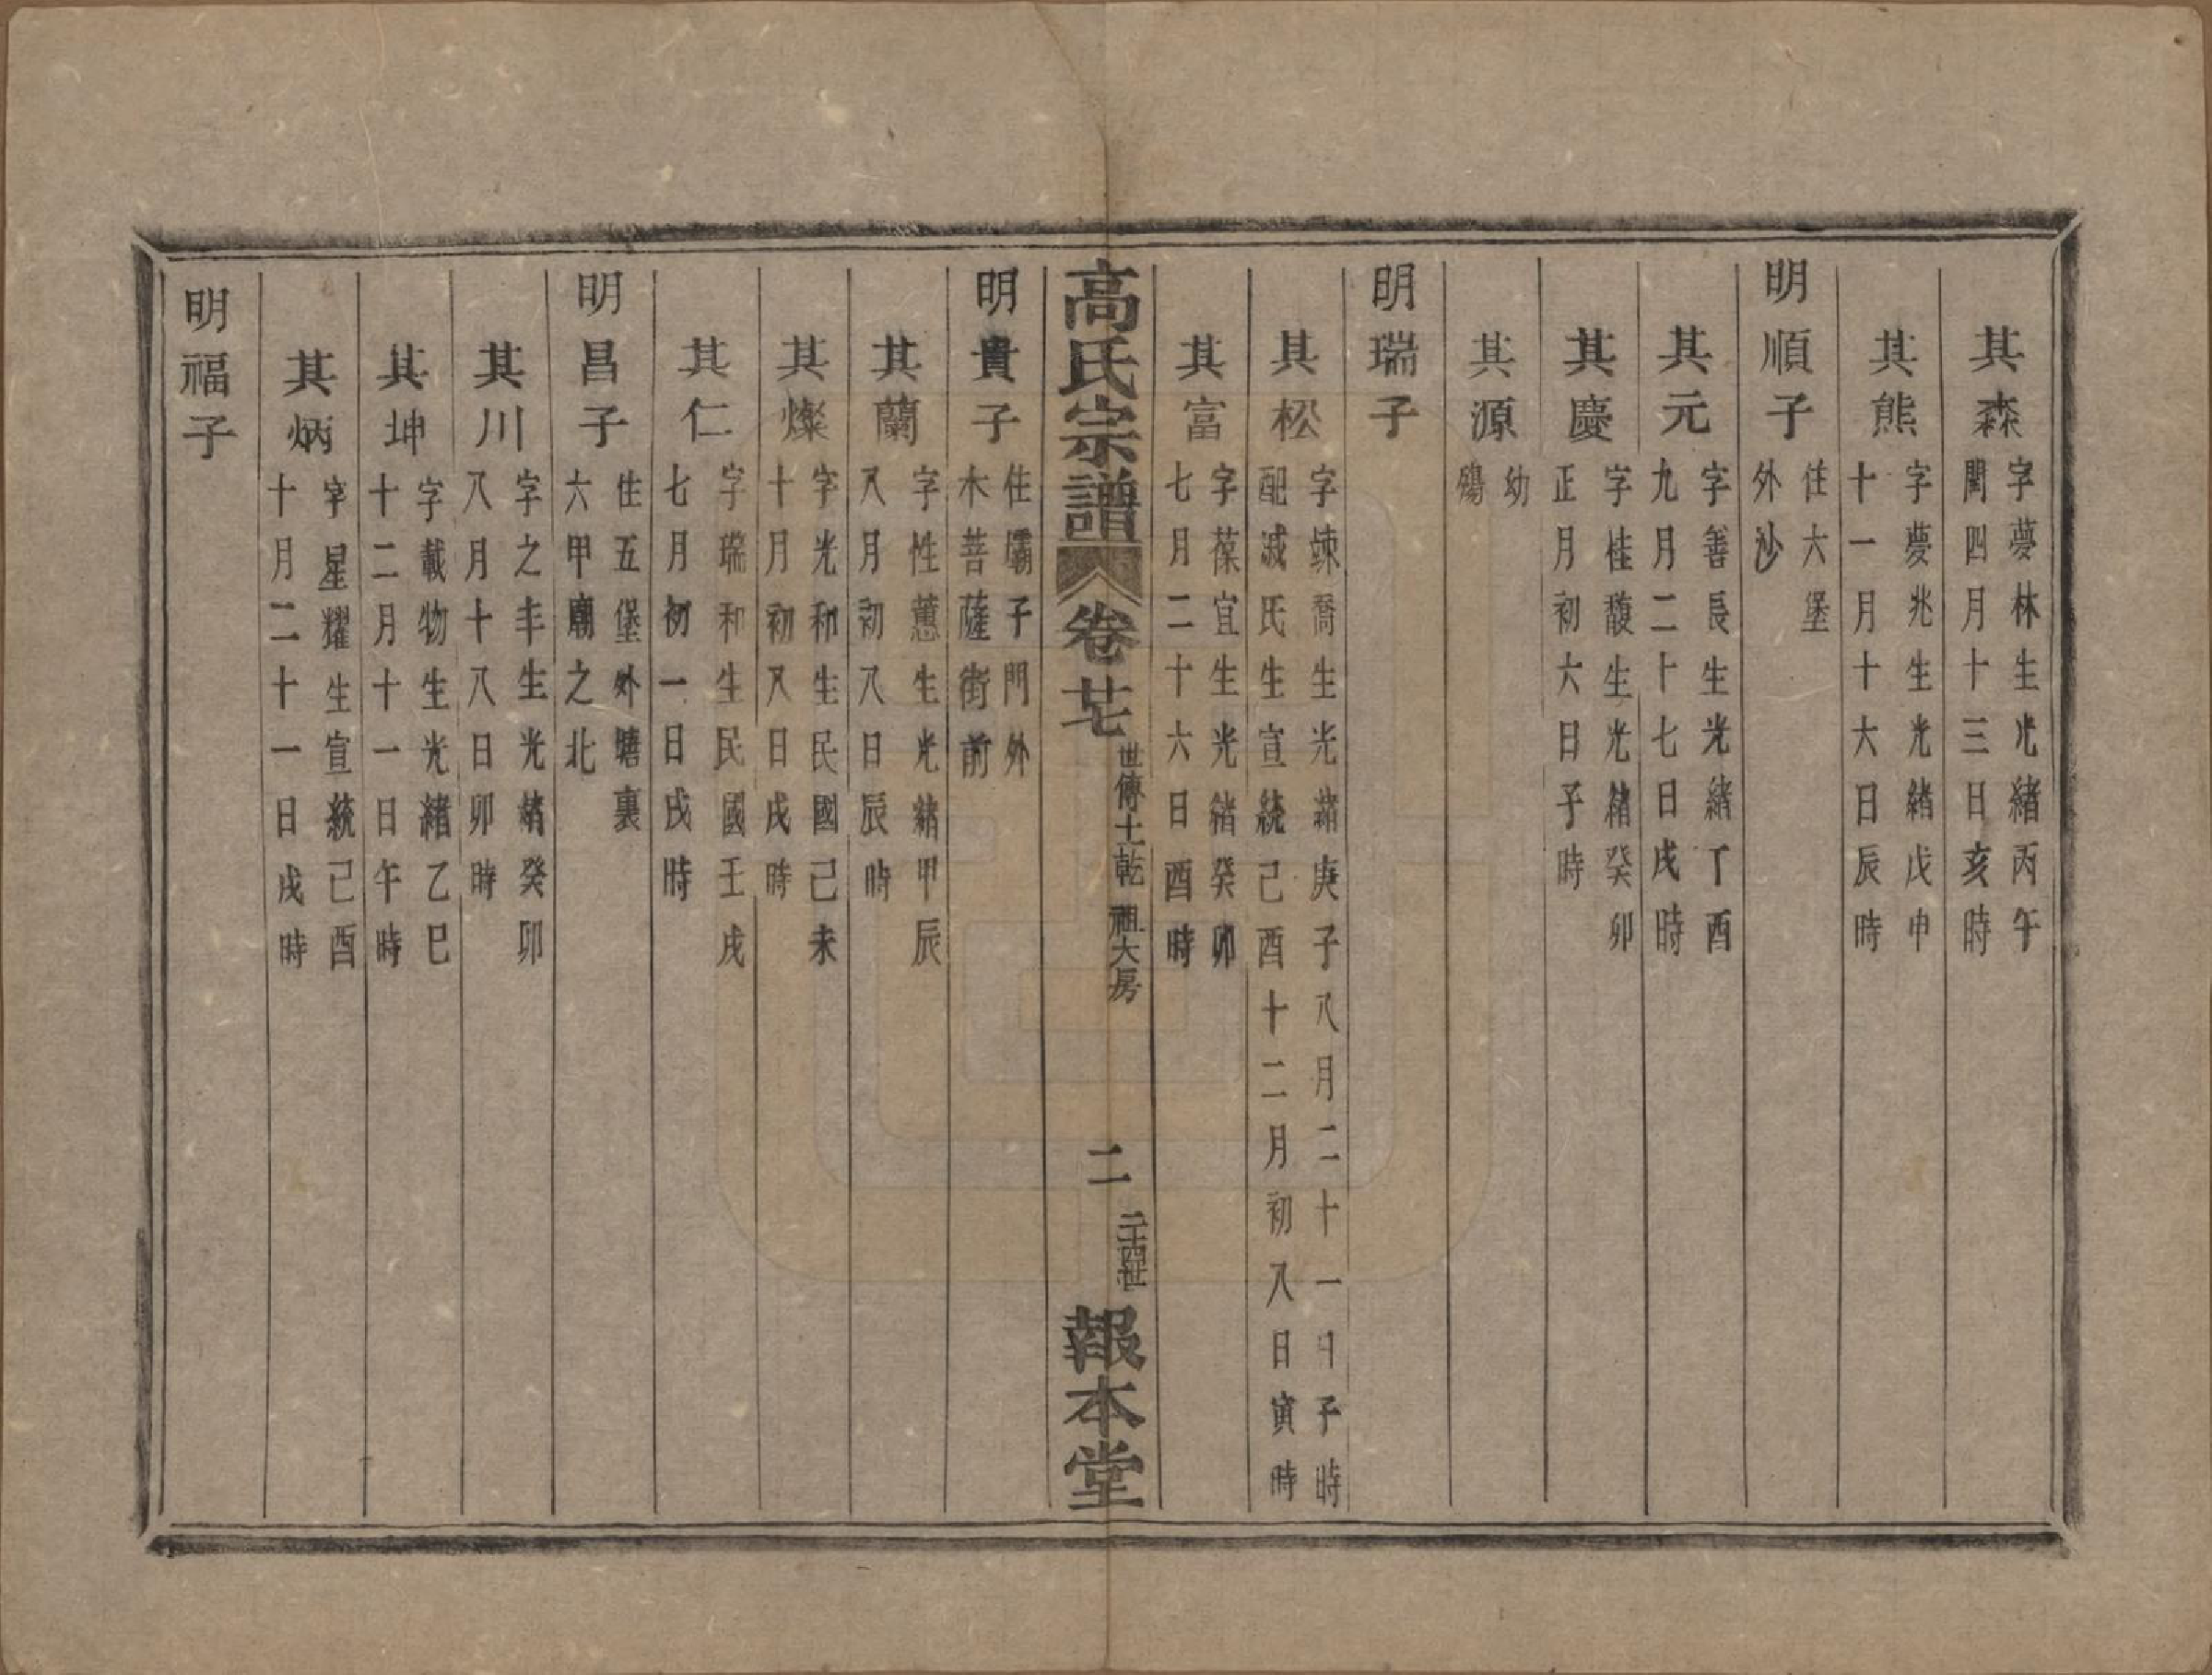 其森 字夢林生光緒丙午
閏四月十三日亥時
其熊 字夢兆生光緒戊申
十一月十六日辰時
明順子 住六堡
外沙
其元 字善長生光緒丁酉
九月二十七日戌時
其慶 字桂馥生光緒癸卯
正月初六日子時
其源 幼
殤
明瑞子
其松 字竦喬生光緒庚子八月二十一日子時
配戚氏生宣統己酉十二月初八日寅時
其富 字葆宜生光緒癸卯
七月二十六日酉時
高氏宗譜 卷廿七 世傳 土乾 祖大房 二 二十四世 報本堂
明貴子 住壩子門外
木菩薩街前
其蘭 字性蕙生光緒甲辰
八月初八日辰時
其燦 字光和生民國己未
十月初八日戌時
其仁 字瑞和生民國壬戌
七月初一日戌時
明昌子 住五堡外塘裏
六甲廟之北
其川 字之丰生光緒癸卯
八月十八日卯時
其坤 字載物生光緒乙巳
十二月十一日午時
其炳 字星耀生宣統己酉
十月二十一日戌時
明福子